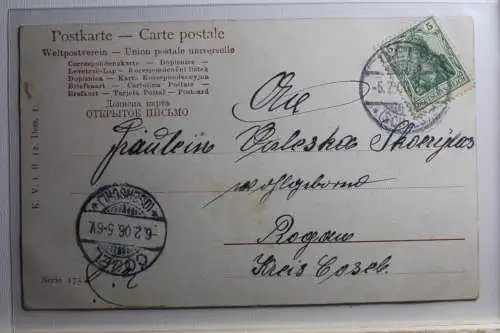 Postkarte — Carte postale
Weltpostverein — Union postale universelle
Correspondenzkarte — Dopisnice —
Levelező-Lap — Korespondenční lístek
Dopisnica — Karta Korespondencyjna
Briefkaart — Cartolina Postale —
Brefkort — Tarjeta Postal — Postcard
Дописна карта
ОТКРЫТОЕ ПИСЬМО
5
An
Fräulein Valeska
wohlgeborn
Rogau
Kreis Cosel.
6.2.06.5-6V.
Serie 175